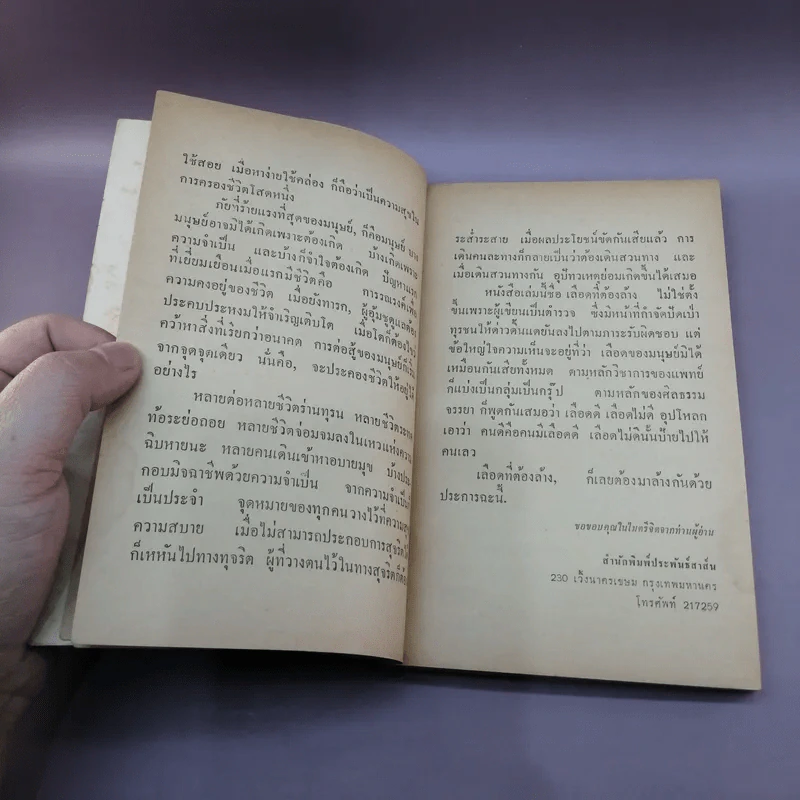 ใช้สอย เมื่อหาง่ายใช้คล่อง ก็ถือว่าเป็นความสุขใน
การครองชีวิตโสดหนึ่ง
ภัยที่ร้ายแรงที่สุดของมนุษย์, ก็คือมนุษย์
มนุษย์อาจมิได้เกิดเพราะต้องเกิด บ้างเกิดเพราะ
ความจำเป็น และบ้างก็จำใจต้องเกิด ปัญหาแรก
ที่เยี่ยมเยือนเมื่อแรกมีชีวิตคือ การรณรงค์เพื่อ
ความคงอยู่ของชีวิต เมื่อยังทารก, ผู้อุ้มชูดูแลต้อง
ประคบประหงมให้จำเริญเติบโต เมื่อโตก็ต้อง
คว้าหาสิ่งที่เรียกว่าอนาคต การต่อสู้ของมนุษย์ก็เริ่ม
จากจุดจุดเดียว นั่นคือ, จะประคองชีวิตให้อยู่ได้
อย่างไร
หลายต่อหลายชีวิตร่านทุรน หลายชีวิต
ท้อระย่อถอย หลายชีวิตจ่อมจมลงในเหวแห่งความ
ฉิบหายนะ หลายคนเดินเข้าหาอบายมุข บ้าง
กอบมิจฉาชีพด้วยความจำเป็น จากความจำเป็น
เป็นประจำ จุดหมายของทุกคนวางไว้ที่ความสุข
ความสบาย เมื่อไม่สามารถประกอบการสุจริต
ก็เหหันไปทางทุจริต ผู้ที่วางตนไว้ในทางสุจริตก็ต้อง
ระส่ำระสาย เมื่อผลประโยชน์ขัดกันเสียแล้ว การ
เดินคนละทางก็กลายเป็นว่าต้องเดินสวนทาง และ
เมื่อเดินสวนทางกัน อุบัทวเหตุย่อมเกิดขึ้นได้เสมอ
หนังสือเล่มนี้ชื่อ เลือดที่ต้องล้าง ไม่ใช่ตั้ง
ขึ้นเพราะผู้เขียนเป็นตำรวจ ซึ่งมีหน้าที่กำจัดปัดเป่า
ทุรชนให้ด่าวดิ้นแดยันลงไปตามภาระรับผิดชอบ แต่
ข้อใหญ่ใจความเห็นจะอยู่ที่ว่า เลือดของมนุษย์มิได้
เหมือนกันเสียทั้งหมด ตามหลักวิชาการของแพทย์
ก็แบ่งเป็นกลุ่มเป็นกรุ๊ป ตามหลักของศิลธรรม
จรรยา ก็พูดกันเสมอว่า เลือดดี เลือดไม่ดี อุปโหลก
เอาว่า คนดีคือคนมีเลือดดี เลือดไม่ดีนั้นป้ายไปให้
คนเลว
เลือดที่ต้องล้าง, ก็เลยต้องมาล้างกันด้วย
ประการฉะนี้.
ขอขอบคุณในไมตรีจิตจากท่านผู้อ่าน
สำนักพิมพ์ประพันธ์สาส์น
230 เวิ้งนาครเขษม กรุงเทพมหานคร
โทรศัพท์ 217259